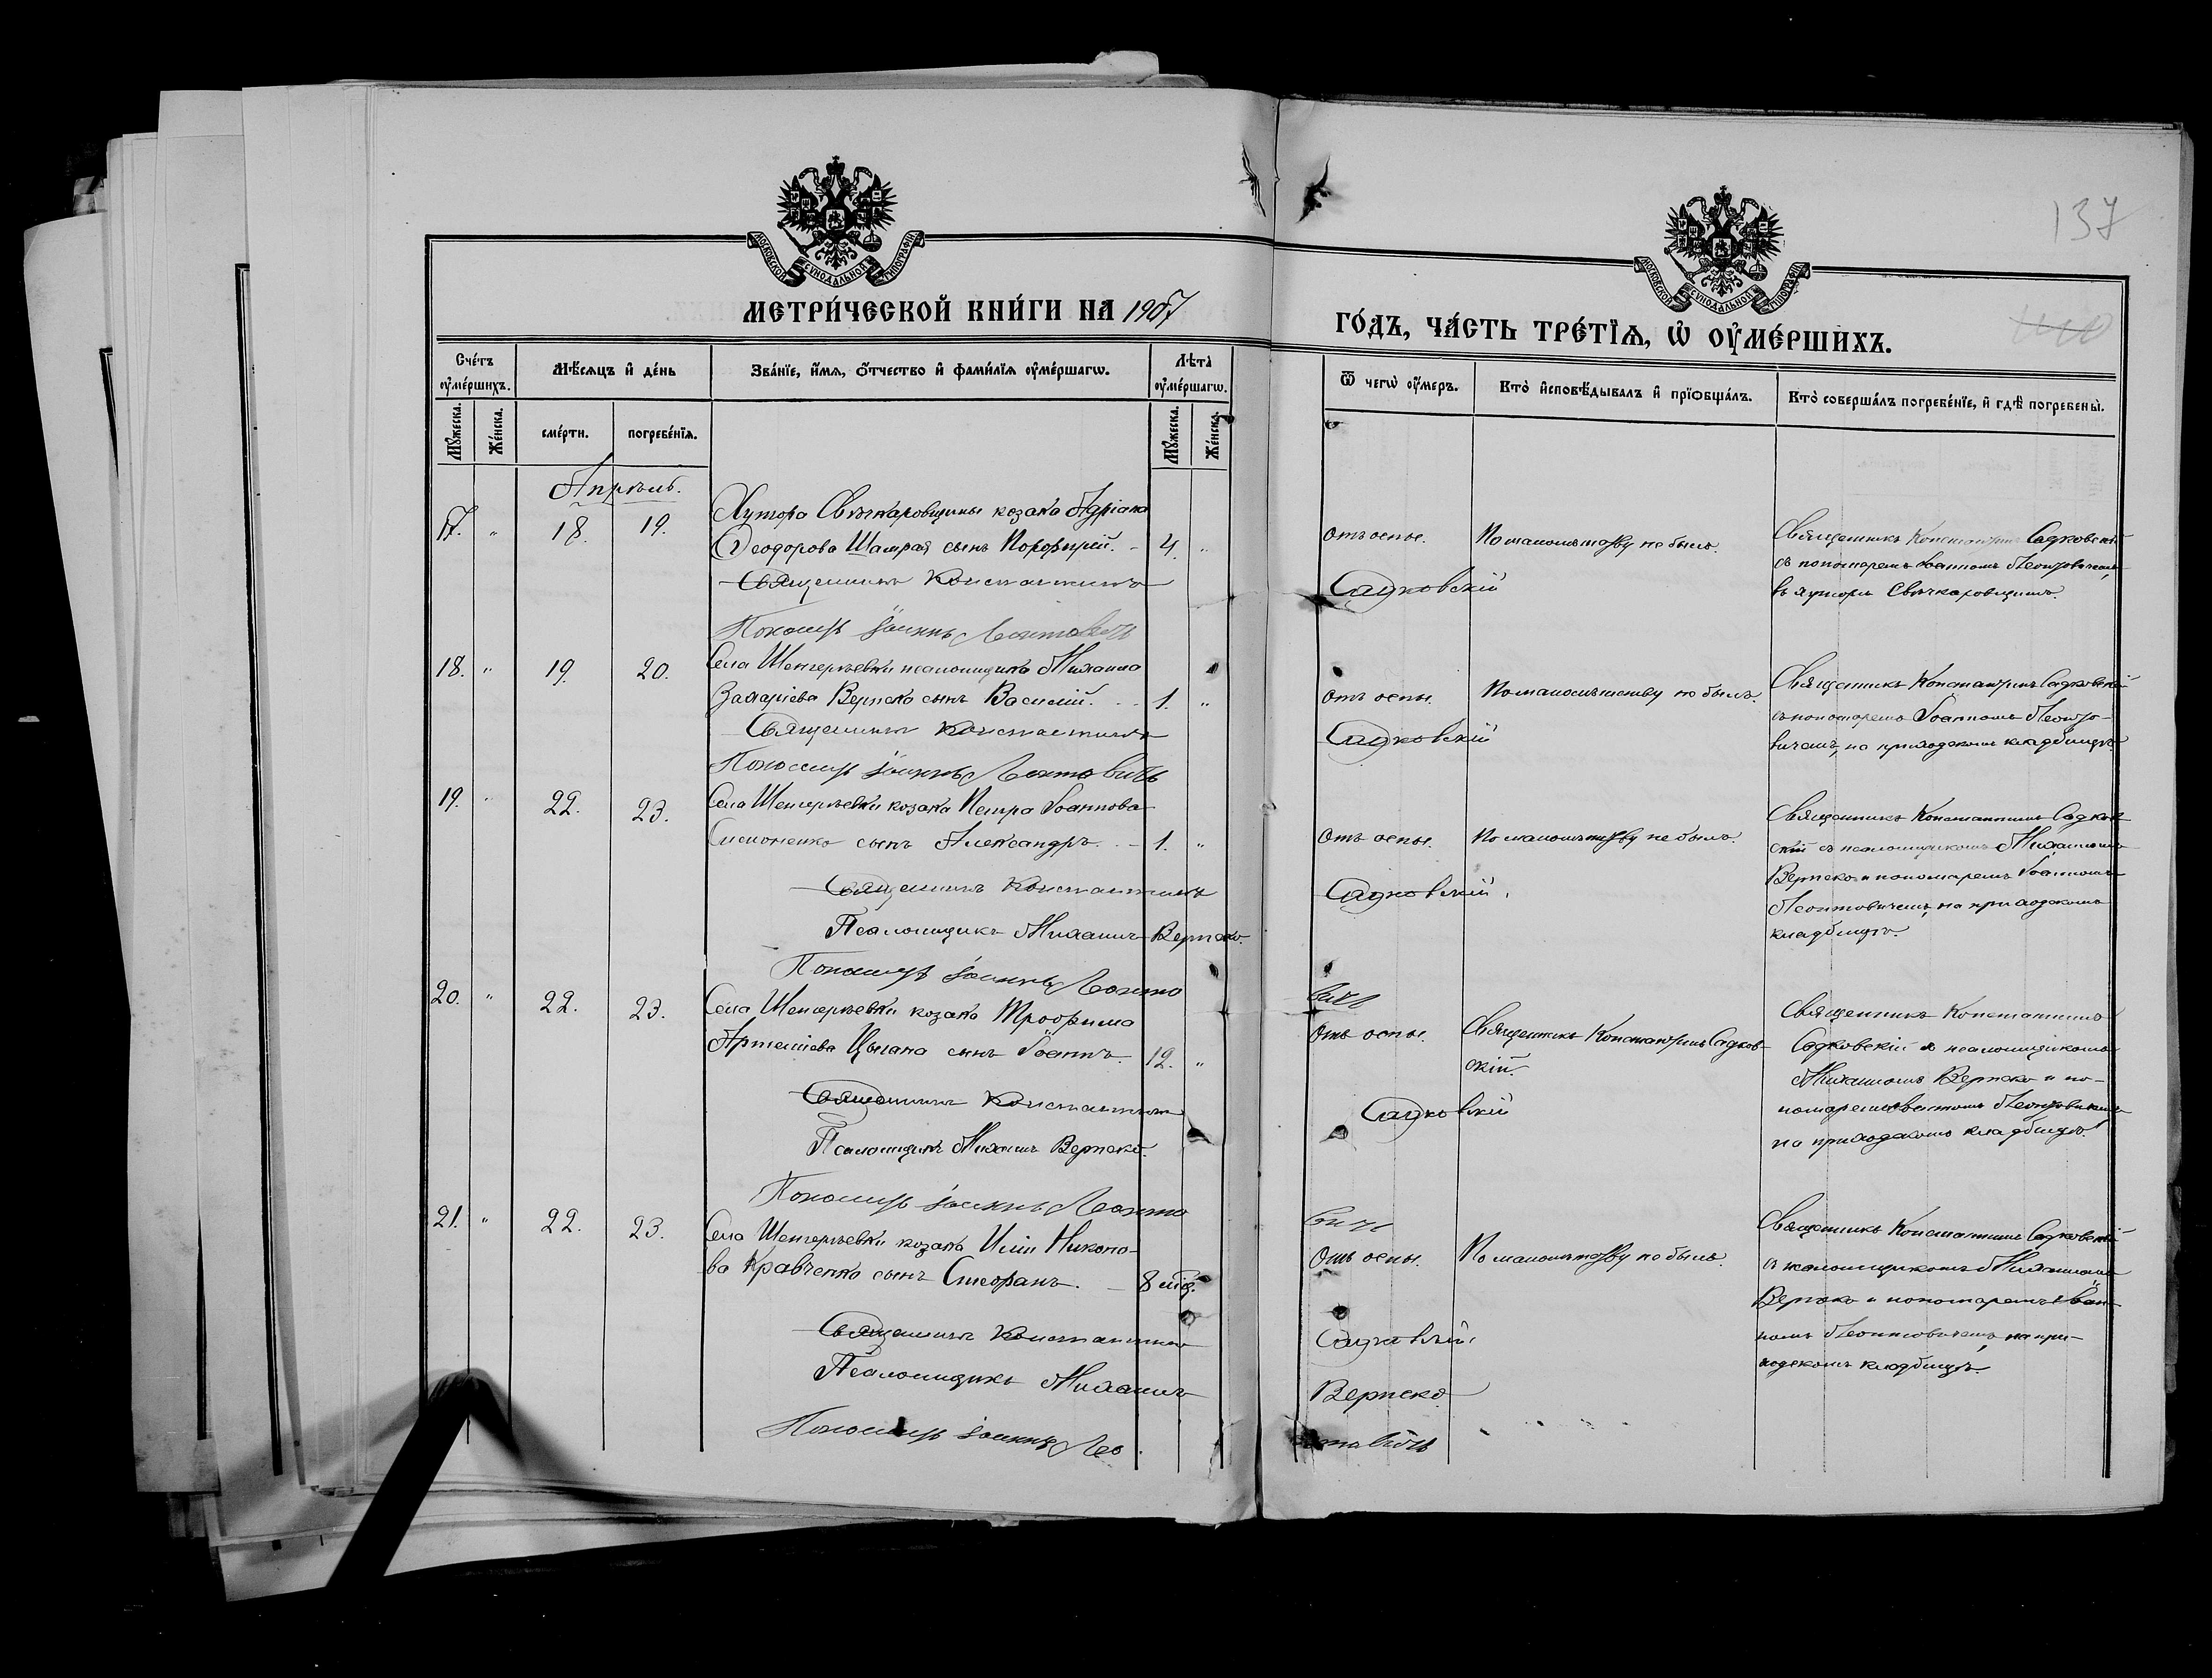 137
МОСКОВСКОЙ СѴНОДАЛЬНОЙ ТИПОГРАФІИ
МОСКОВСКОЙ СѴНОДАЛЬНОЙ ТИПОГРАФІИ
МЕТРИ́ЧЕСКОЙ КНИ́ГИ НА 1907
ГО́ДЪ, ЧА́СТЬ ТРЕ́ТЇѦ, Ѡ҆ ОУ҆МЕ́РШИХЪ.
Сче́тъ оу҆ме́ршихъ.
Мѣ́сяцъ и҆ де́нь
Зва́нїе, и҆́мя, ѻ҆́тчество и҆ фами́лїя оу҆ме́ршагѡ.
Лѣ́та оу҆ме́ршагѡ.
Ѿ чегѡ̀ оу҆́меръ.
Кто̀ и҆сповѣ́дывалъ и҆ прїѻбща́лъ.
Кто̀ соверша́лъ погребе́нїе, и҆ гдѣ̀ погребены̀.
Мꙋ́жеска.
Же́нска.
сме́рти.
погребе́нїя.
Мꙋ́жеска.
Же́нска.
Апрѣль.
17. " 18. 19.
Хутора Свѣчкаровщины козака Адріана
Ѳеодорова Шамрая сынъ Порфирій. - 4. "
Священникъ Константинъ
Пономарь Іоаннъ Леонтовичъ
Отъ оспы.
По малолѣтству не былъ.
Садковскій
Священникъ Константинъ Садковскій
съ пономаремъ Іоанномъ Леонтовичемъ,
въ хуторѣ Свѣчкаровщинѣ.
18. " 19. 20.
Села Шенгерѣевки псаломщика Михаила
Захаріева Вернско сынъ Василій. - - 1. "
Священникъ Константинъ
Пономарь Іоаннъ Леонтовичъ
Отъ оспы.
По малолѣтству не былъ.
Садковскій
Священникъ Константинъ Садковскій
съ пономаремъ Іоанномъ Леонто-
вичемъ, на приходскомъ кладбищѣ.
19. " 22. 23.
Села Шенгерѣевки козака Петра Іоаннова
сынъ Александръ. - - 1. "
Священникъ Константинъ
Псаломщикъ Михаилъ Вернско.
Пономарь Іоаннъ Леонто
вичъ
Отъ оспы.
По малолѣтству не былъ.
Садковскій
Священникъ Константинъ Садков-
скій съ псаломщикомъ Михаиломъ
Вернско и пономаремъ Іоанномъ
Леонтовичемъ, на приходскомъ
кладбищѣ.
20. " 22. 23.
Села Шенгерѣевки козака Трофима
Артеміева Цыгана сынъ Іоаннъ. 12. "
Священникъ Константинъ
Псаломщикъ Михаилъ Вернско.
Пономарь Іоаннъ Леонто
вичъ
Отъ оспы.
Священникъ Константинъ Садков-
скій.
Садковскій
Священникъ Константинъ
Садковскій съ псаломщикомъ
Михаиломъ Вернско и по-
номаремъ Іоанномъ Леонтовичемъ,
на приходскомъ кладбищѣ.
21. " 22. 23.
Села Шенгерѣевки козака Иліи Никоно-
ва Кравченка сынъ Стефанъ. - 8 мѣс.
Священникъ Константинъ
Псаломщикъ Михаилъ
Пономарь Іоаннъ Лео
Отъ оспы.
По малолѣтству не былъ.
Садковскій
Вернско
Священникъ Константинъ Садковскій
съ псаломщикомъ Михаиломъ
Вернско и пономаремъ Іоан-
номъ Леонтовичемъ, на при-
ходскомъ кладбищѣ.